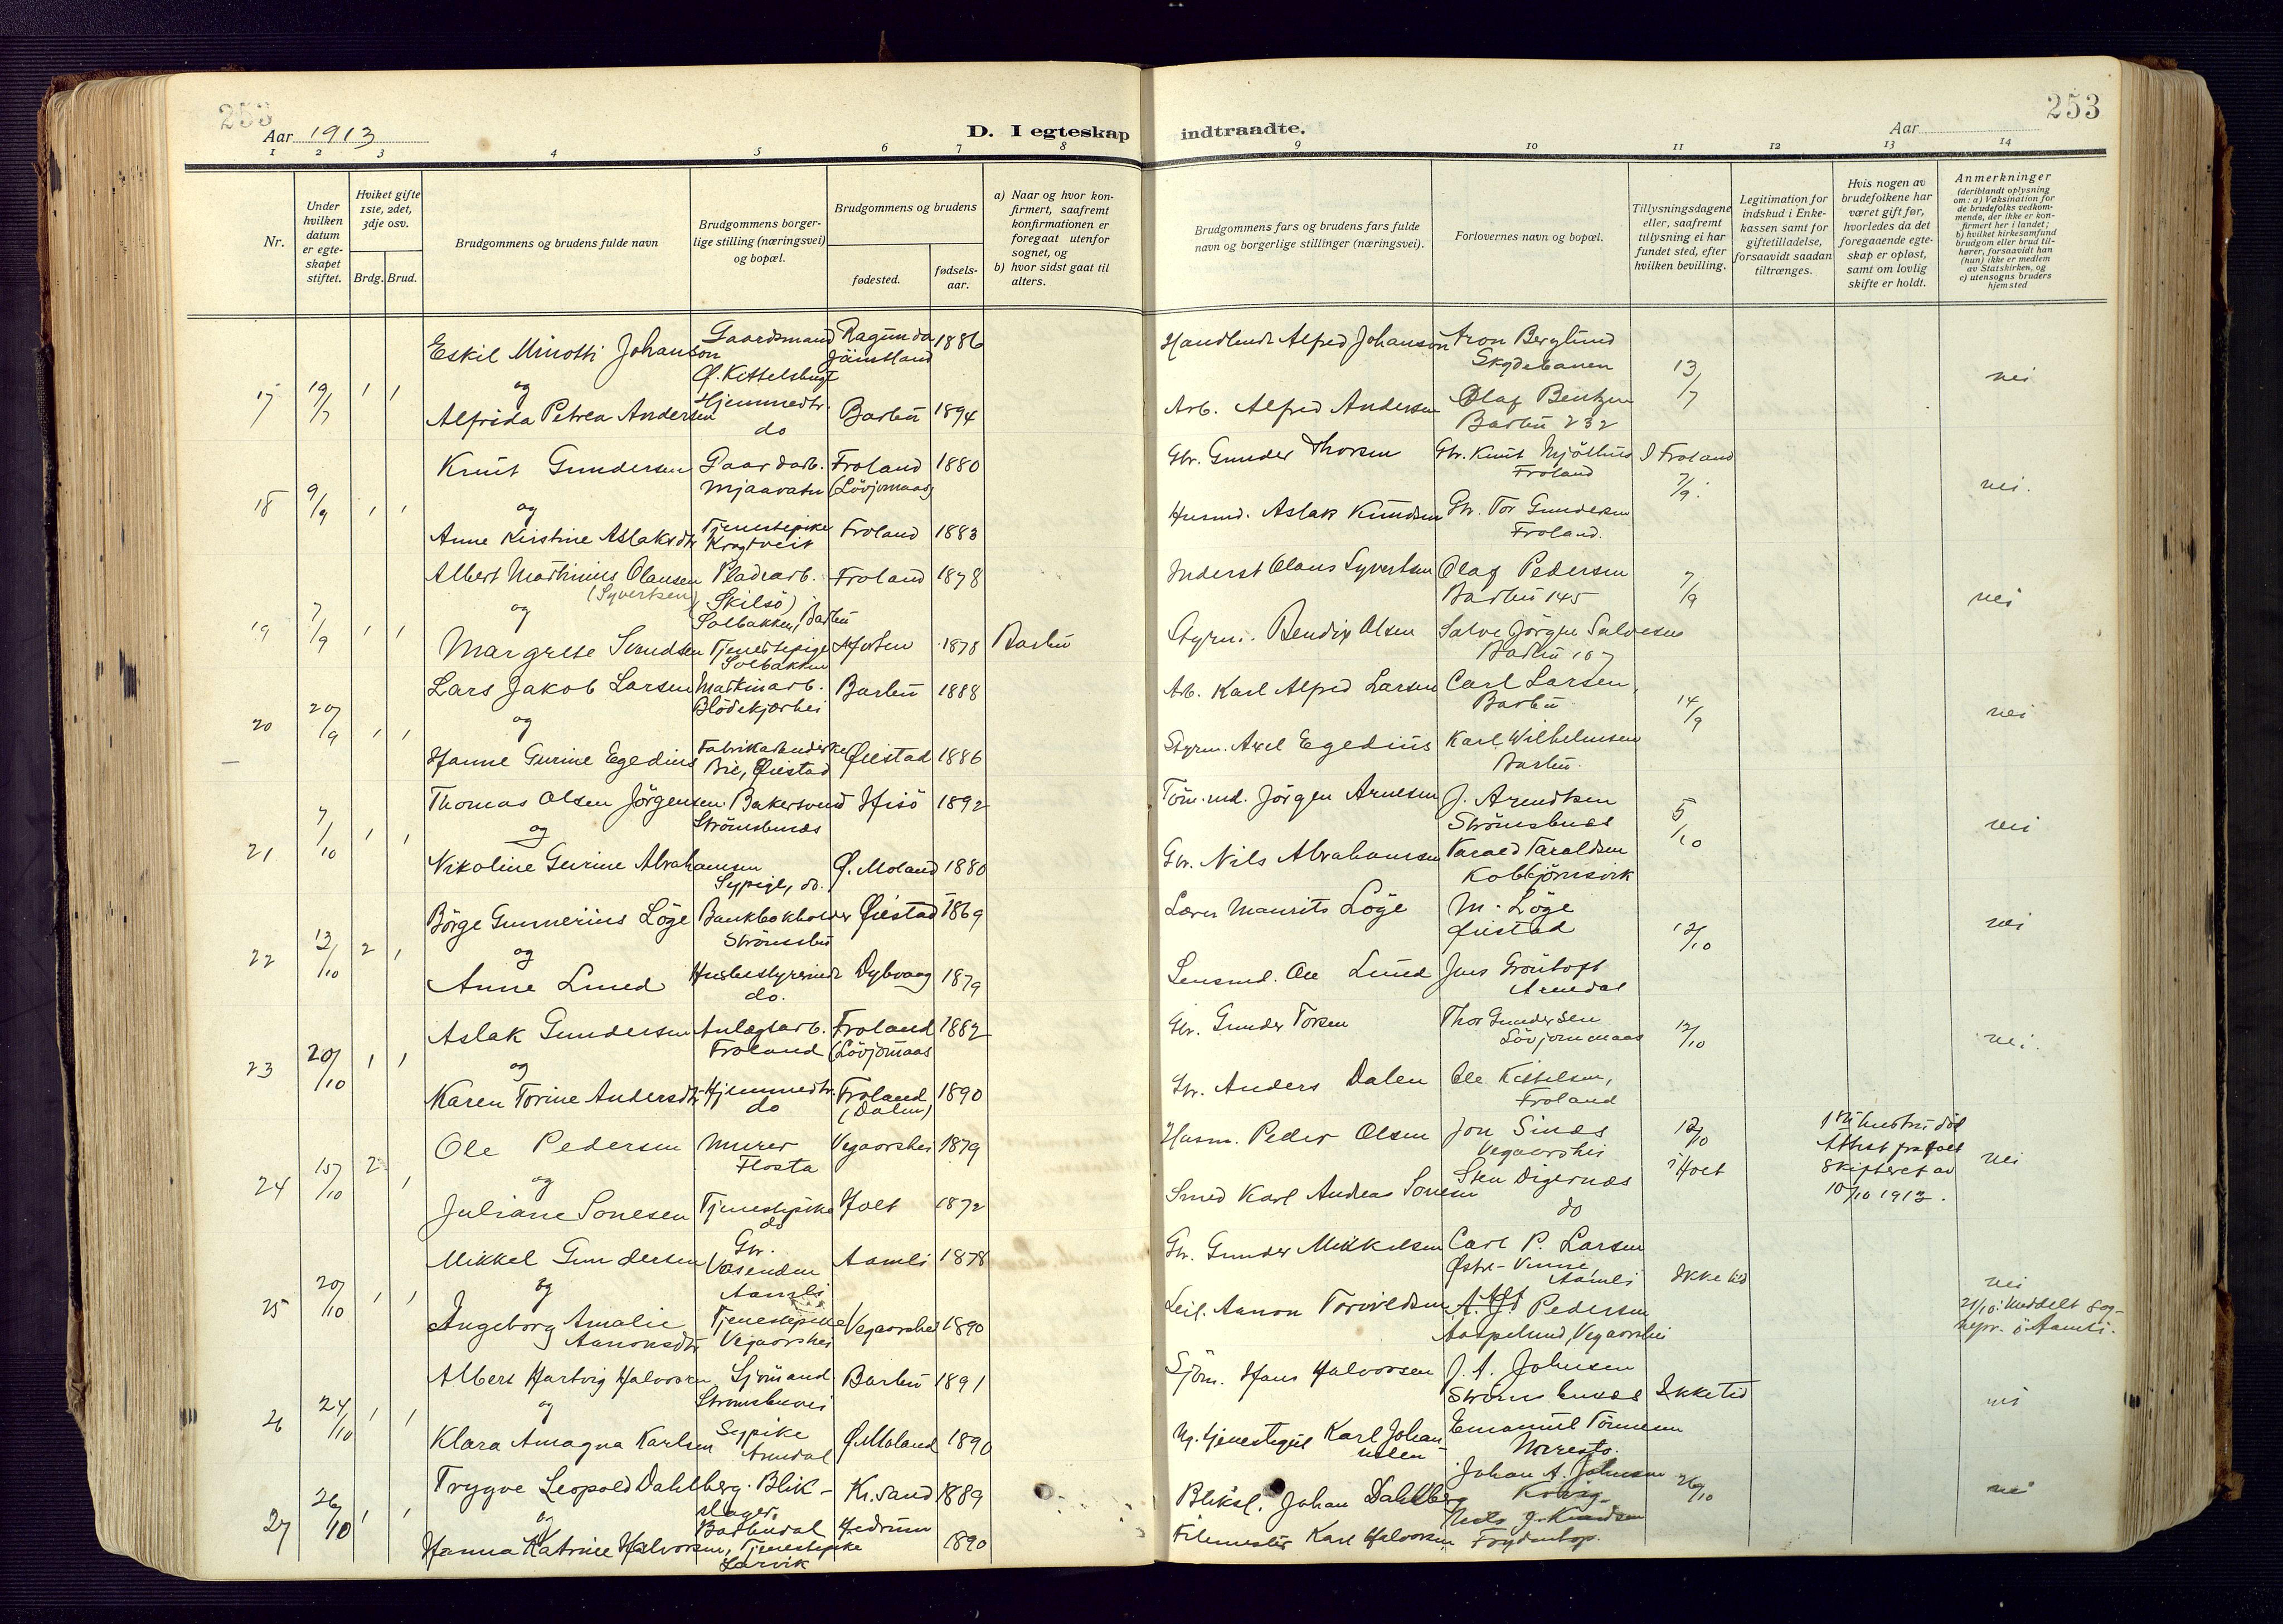 253
253
Aar 1913
D. I egteskap indtraadte.
Aar
1 2 3 4 5 6 7 8 9 10 11 12 13 14
Nr.
Under hvilken datum er egteskapet stiftet.
Hviket gifte 1ste, 2det, 3dje osv.
Brdg. Brud.
Brudgommens og brudens fulde navn
Brudgommens borgerlige stilling (næringsvei) og bopæl.
Brudgommens og brudens
fødested.
fødselsaar.
a) Naar og hvor konfirmert, saafremt konfirmationen er foregaat utenfor sognet, og
b) hvor sidst gaat til alters.
Brudgommens fars og brudens fars fulde navn og borgerlige stillinger (næringsvei).
Forlovernes navn og bopæl.
Tillysningsdagene eller, saafremt tillysning ei har fundet sted, efter hvilken bevilling.
Legitimation for indskud i Enkekassen samt for giftetilladelse, forsaavidt saadan tiltrænges.
Hvis nogen av brudefolkene har været gift før, hvorledes da det foregaaende egteskap er opløst, samt om lovlig skifte er holdt.
Anmerkninger
(deriblandt oplysning om: a) Vaksination for de brudefolks vedkommende, der ikke er konfirmert her i landet;
b) hvilket kirkesamfund brudgom eller brud tilhører, forsaavidt han (hun) ikke er medlem av Statskirken, og
c) utensogns bruders hjemsted
17 19/7 1 1
Eskil Minotti Johanson Gaardsmand Ø. Kittelsbugt Ragunda Jämtland 1886 Alfred Johanson Aron Berglund Skydebanen 13/7 nei
og
Alfrida Petrea Andersen Hjemmedtr. do Barbu 1894 Arb. Alfred Andersen Olaf Bentzen Barbu 232
18 9/9 1 1
Knut Gundersen Gaardarb. Mjaavatn Froland (Lövjomaas) 1880 Gbr. Gunder Thorsen Gbr. Knut Mjölhus Froland I Froland 7/9. nei.
og
Anne Kirstine Aslaksdtr Tjenestepike Froland 1883 Husmd. Aslak Knudsen Gbr. Tor Gundersen Froland.
19 7/9 1 1
Albert Martinius Olausen (Syvertsen) Pladsarb. (Skilsö) Solbakken, Barbu Froland 1878 Inderst Olaus Syvertsen Olaf Pedersen Barbu 145 7/9 nei
og
Margrete Svendsen Tjenestepige Solbakken 1878 Barbu Styrm. Bendix Olsen Salve Jörgen Salvesen Barbu 107
20 20/9 1 1
Lars Jakob Larsen Maskinarb. Blödekjærhei Barbu 1888 Arb. Karl Alfred Larsen Carl Larsen, Barbu 14/9 nei
og
Hanne Gurine Egedius Fabrikarbeiderske Bie, Øiestad Øiestad 1886 Styrm. Axel Egedius Karl Wilhelmsen Barbu.
21 7/10 1 1
Thomas Olsen Jörgensen Bakersvend Strömsbunäs Hisö 1892 Töm.md. Jörgen Arnesen J. Arendtsen Strömsbunäs 5/10 nei
og
Nikoline Gurine Abrahamsen Sypige, do. Ø. Moland 1880 Gbr. Nils Abrahamsen Tarald Taraldsen
22 13/10 2 1
Börge Gunnerius Löge Bankbokholder Strömsbu Øiestad 1869 Lærer Maurits Löge M. Löge Øiestad 12/10 nei
og
Anne Lund Husbestyrerinde do. Dybvaag 1879 Lensmd. Ole Lund Jens Gröntoft Arendal
23 20/10 1 1
Aslak Gundersen Anlægsarb. Froland Froland (Lövjomaas 1882 Gbr. Gunder Torsen Thor Gundersen Lövjommaas 12/10 nei.
og
Karen Torine Andersdtr Hjemmedtr. do Froland (Dalen) 1890 Gbr. Anders Dalen Ole Kittelsen, Froland
24 15/10 2 1
Ole Pedersen Murer Flosta Vegaarshei 1879 Husm. Peder Olsen Jon Sinäs Vegaarshei 12/10 i Holt 1ste hustru död Attest fra Holt Skifteret av 10/10 1913. nei
og
Juliane Sonesen Tjenestepike do Holt 1872 Smed Karl Andreas Sonesen Sten Digernäs do
25 20/10 1 1
Mikkel Gundersen Gbr. Vasenden Aamli Aamli 1878 Gbr. Gunder Mikkelsen Carl P. Larsen Østre-Vimme, Aamli Ikke tid nei
og
Ingeborg Amalie Aanonsdtr Tjenestepike Vegaarshei Vegaarshei 1890 Leil. Aanon Torvildsen Pedersen Aaspelund, Vegaarshei 21/10: Meddelt Sognepr. i Aamli.
26 24/10 1 1
Albert Hartvig Halvorsen Sjömand Strömsbuvei Barbu 1891 Sjöm. Hans Halvorsen J. A. Johnsen Strömsbunäs Ikke tid nei
og
Klara Amagna Karlsen Sypike Arendal Ø. Moland 1890 Karl Johan Emanuel Tönnesen Naresto.
27 26/10 1 1
Trygve Leopold Dahlberg. Blikslager, Barbudal Kr.sand 1889 Bliksl. Johan Dahlberg Johan A. Johnsen 26/10 nei
og
Hanna Katrine Halvorsen, Tjenestepike Larvik Hedrum 1890 Filemester Karl Halvorsen